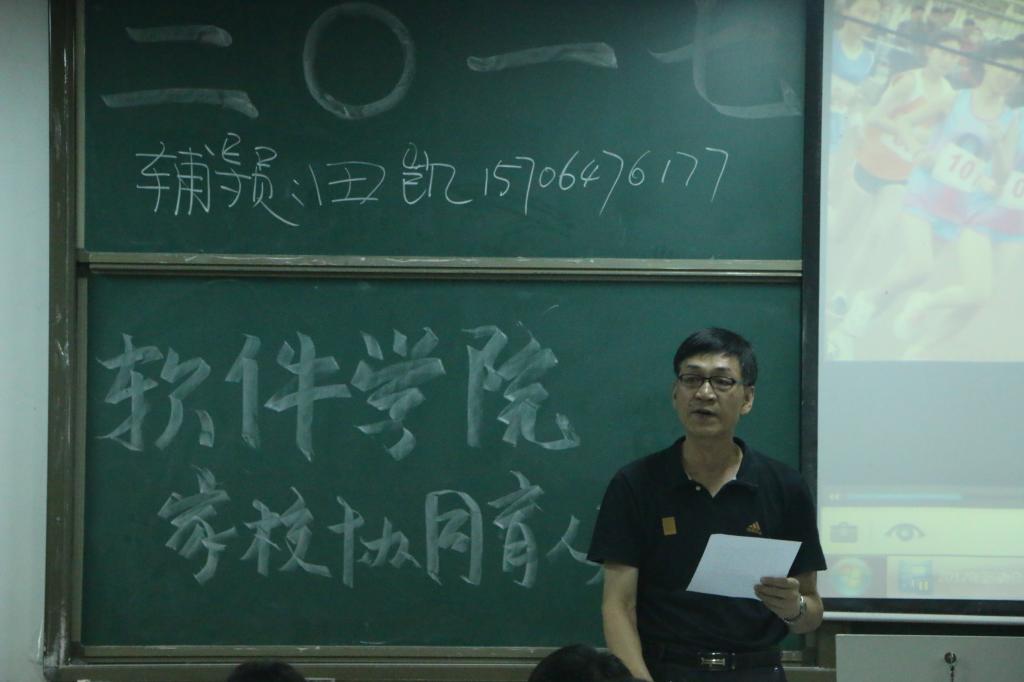 二〇一七
辅导员:田凯 15706476177
软件学院
家校协同育人
10
adidas